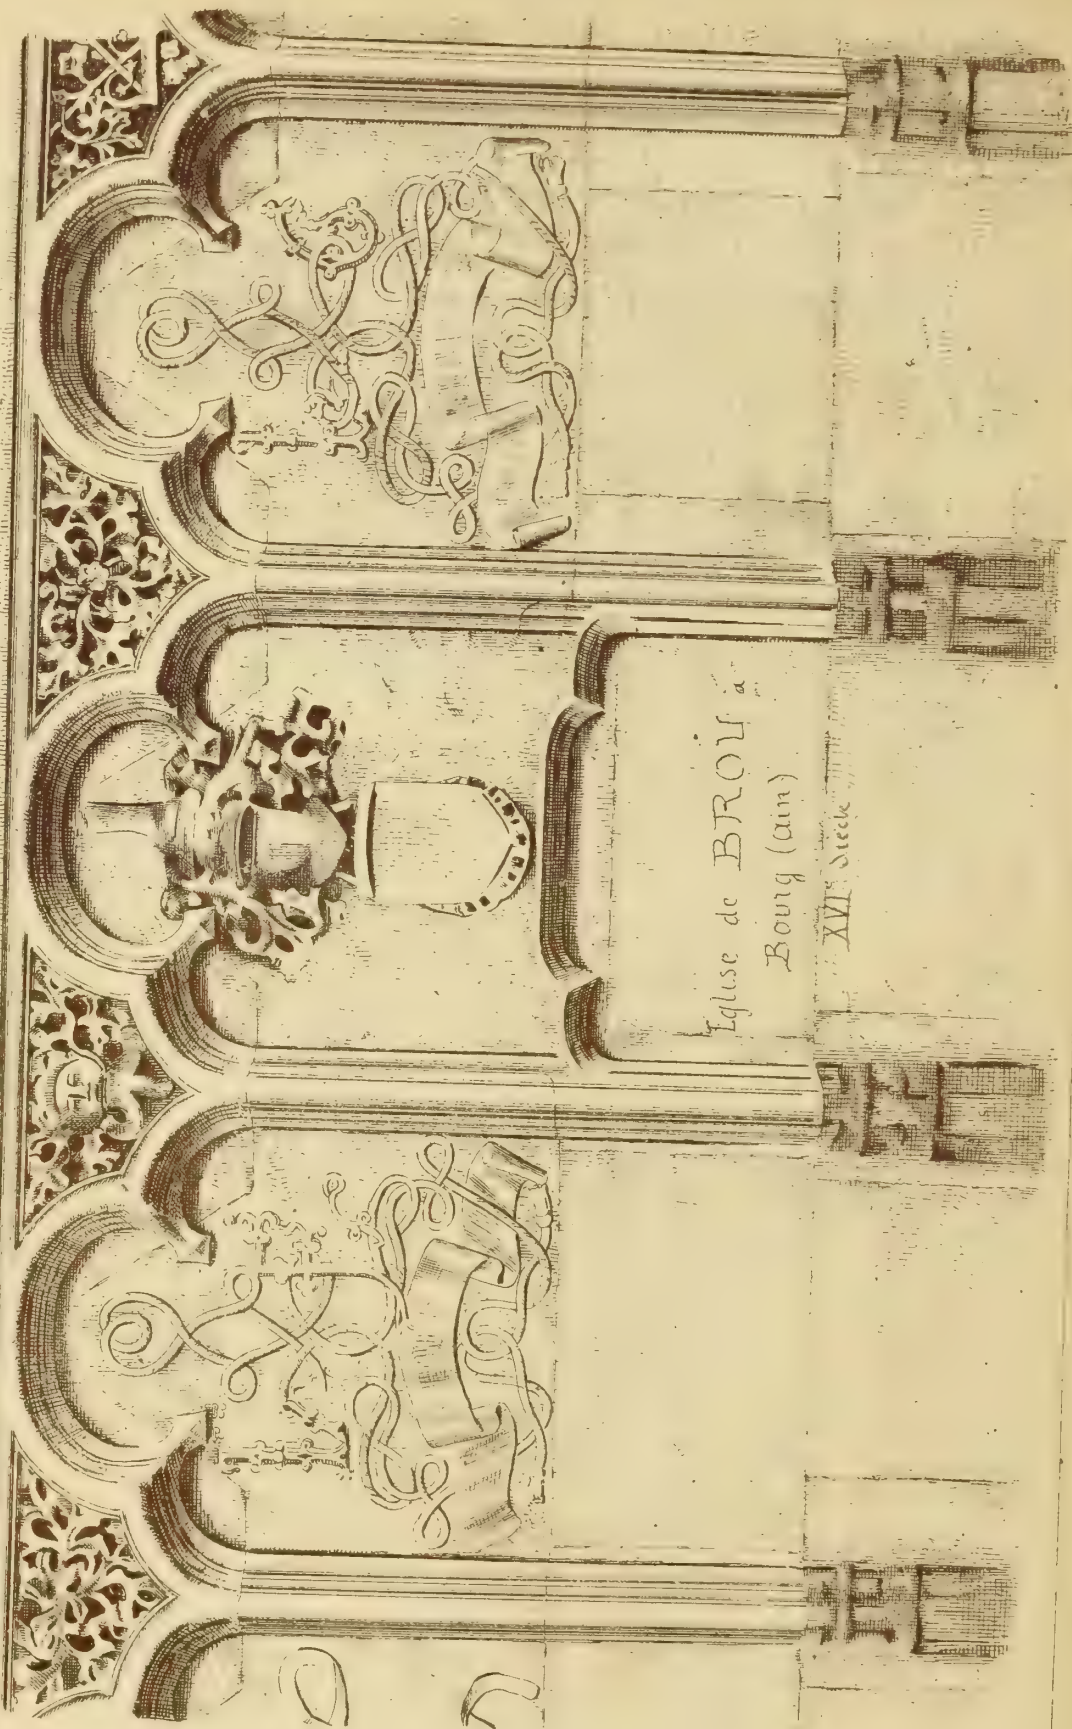 Eglise de BROU à
Bourg (ain)
XVIe Siècle